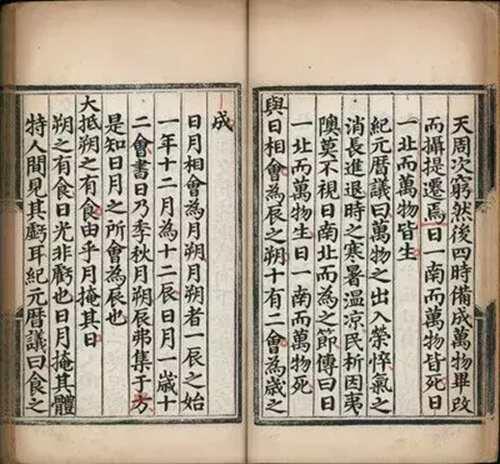 天周次窮然後四時備成萬物畢改
而攝提遷焉日一南而萬物皆死日
一北而萬物皆生
紀元曆議曰萬物之出入榮悴氣之
消長進退時之寒暑溫涼民析因夷
隩莫不視日南北而為之節傳曰日
一北而萬物生日一南而萬物死
與日相會為辰之朔十有二會為歲之
成
日月相會為月朔月朔者一辰之始
一年十二月為十二辰日月一歲十
二會書曰乃季秋月朔辰弗集于房
是知日月之所會為辰也
大抵朔之有食由乎月掩其日
朔之有食日光非虧也日月掩其體
特人間見其虧耳紀元曆議曰食之